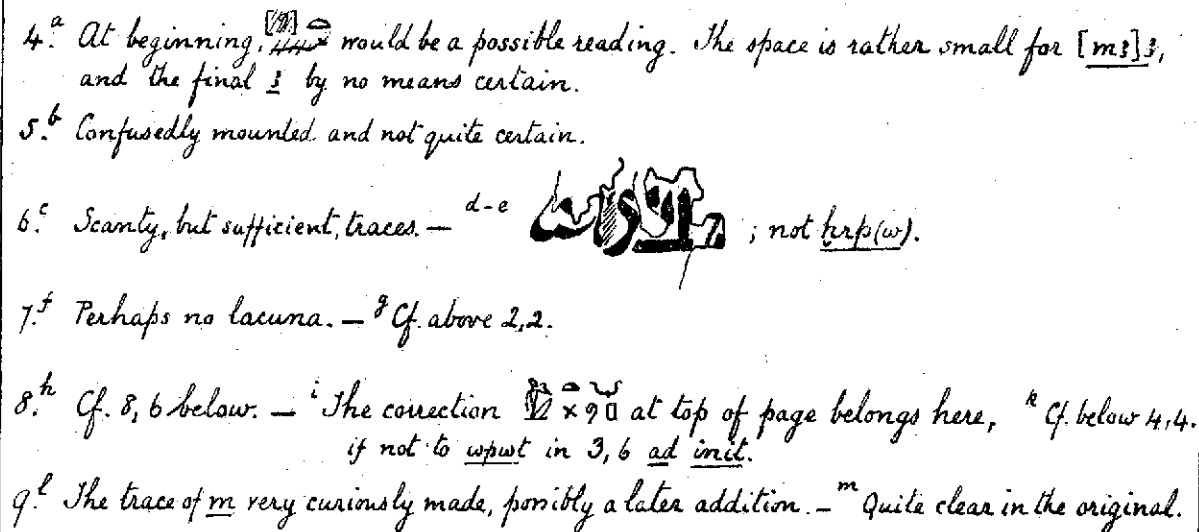 4.a At beginning, would be a possible reading. The space is rather small for [mꜣ]ꜣ,
and the final ꜣ by no means certain.
5.b Confusedly mounted and not quite certain.
6.c Scanty, but sufficient, traces. — d-e ; not ḫrp(w).
7.f Perhaps no lacuna. — g Cf. above 2,2.
8.h Cf. 8,6 below. — i The correction at top of page belongs here, k Cf. below 4,4.
if not to wpwt in 3,6 ad init.
9.l The trace of m very curiously made, possibly a later addition. — m Quite clear in the original.